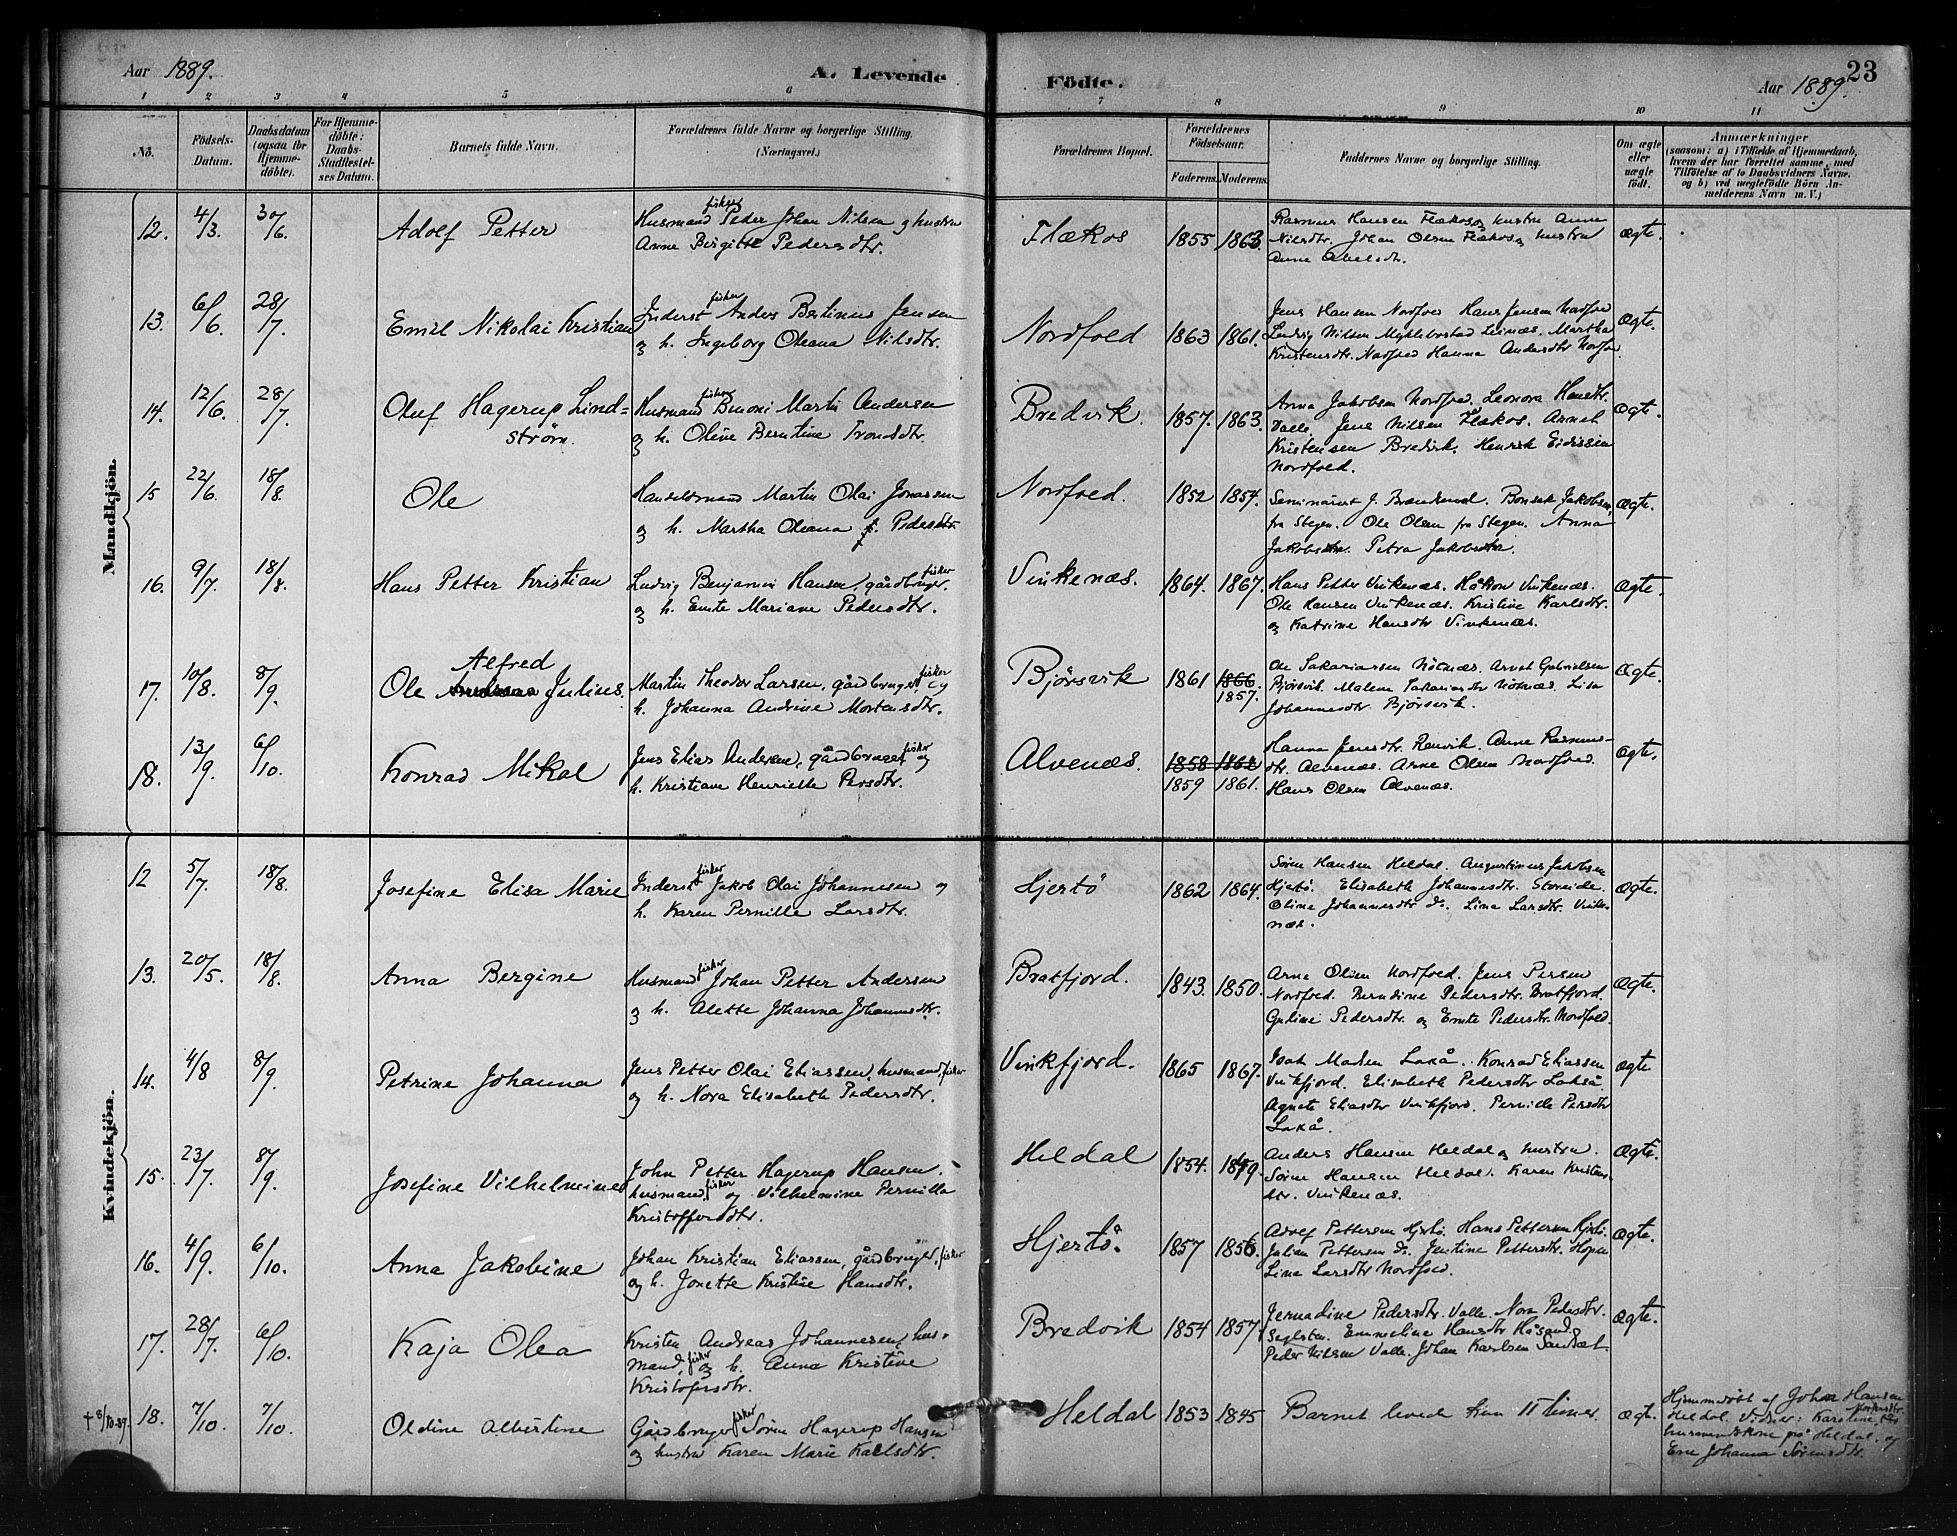 Aar 1889.
A. Levende
Födte.
Aar 1889.
23
1 2 3 4 5 6 7 8 9 10 11
No.
Födsels-Datum.
Daabsdatum (ogsaa for Hjemme-döbte).
For Hjemme-döbte: Daabs-Stadfestel-ses Datum.
Barnets fulde Navn.
Forældrenes fulde Navne og borgerlige Stilling. (Næringsvei.)
Forældrenes Bopæl.
Forældrenes Födselsaar.
Faderens. Moderens.
Faddernes Navne og borgerlige Stilling.
Om ægte eller uægte födt.
Anmærkninger
(saasom: a) i Tilfælde af Hjemmedaab, hvem der har forrettet samme, med Tilföielse af to Daabsvidners Navne, og b) ved uægtefödte Börn An-melderens Navn m. V.)
Mandkjön.
12. 4/3. 30/6. Adolf Petter
Husmand fisker Peder Johan Nilsen og hustru
Anne Birgitte Pedersdtr.
Flækos 1855 1863
Rasmus Hansen Flækos og hustru Anne
Nilsdtr. Johan Olsen Flækos og hustru
Anne Abelsdtr.
Ægte.
13. 6/6. 28/7. Emil Nikolai Kristian
Inderst fisker Anders Bertinus Jensen
og h. Ingeborg Oleana Nilsdtr.
Nordfold 1863 1861.
Jens Hansen Nordfold Hans Jensen Nordfold
Ludvig Nilsen Myklebostad Leinæs. Martha
Kristensdtr. Nordfold Hanna Andersdtr Nordfo
Ægte.
14. 12/6. 28/7. Oluf Hagerup Lind=
strøm.
Husmand fisker Benoni Martin Andersen
og h. Oline Berntine Trondsdtr.
Bredvik. 1857. 1863.
Anna Jakobsen Nordfold. Leonora Hansdtr.
Valle. Jens Nilsen Flækos. Arnet
Kristensen Bredvik. Henrik Eidissen
Nordfold.
Ægte.
15 22/6. 18/8. Ole
Handelsmand Martin Olai Jonassen
og h. Martha Oleana f. Pedersdtr.
Nordfold. 1852 1854.
Seminarist J. Brændmoel. Bonsak Jakobsen,
fra Stegen. Ole Olsen fra Stegen. Anna
Jakobsdtr. Petra Jakobsdtr.
Ægte.
16. 9/7. 18/8. Hans Petter Kristian
Ludvig Benjamin Hansen, gårdbruger. fisker
og h. Emte Mariane Pedersdtr.
Vinkenæs. 1864. 1867.
Hans Petter Vinkenæs. Håkon Vinkenæs.
Ole Hansen Vinkenæs. Kristine Karlsdtr.
og Katrine Hansdtr Vinkenæs.
Ægte.
17. 10/8. 8/9. Alfred
Ole Andreas Julius.
Martin Theodor Larsen, gårdbruger, fisker og
h. Johanna Andrine Mortensdtr.
Bjørsvik 1861 1866
1857.
Ole Sakariassen Nötnæs. Arnt Gabrielsen
Bjørsvik. Malene Sakariasdtr Nötnæs. Lisa
Johannesdtr Bjørsvik.
Ægte.
18. 13/9. 6/10. Konrad Mikal
Jens Elias Andersen, gårdbruger, fisker og
h. Kristiane Henriette Persdtr.
Alvenæs. 1858 1862
1859 1861.
Hanna Jensdtr. Ranvik. Anne Rasmus-
dtr. Alvenæs. Arne Olsen Nordfold.
Hans Olsen Alvenæs.
Ægte.
Kvindekjön.
12 5/7. 18/8. Josefine Elisa Marie
Inderst fisker Jakob Olai Johannesen og
h. Karen Pernille Larsdtr.
Hjertö 1862 1864.
Sören Hansen Heldal. Augustinus Jakobsen
Hjertö. Elisabeth Johannesdtr. Storeide.
Oline Johannesdtr do. Lina Larsdtr. Vinke-
næs.
Ægte.
13. 20/5. 18/8. Anna Bergine
Husmand fisker Johan Petter Andersen
og h. Alette Johanna Johannesdtr.
Bratfjord. 1843. 1850.
Arne Olsen Nordfold. Jens Persen
Nordfold. Berndine Pedersdtr. Bratfjord.
Gjuline Pedersdtr og Emte Pedersdtr. Nordfold.
Ægte.
14. 4/8 8/9. Petrine Johanna
Jens Petter Olai Eliassen, husmand, fisker
og h. Nora Elisabeth Pedersdtr.
Vinkfjord. 1865 1867.
Isak Madsen Laxå. Konrad Eliassen
Vinkfjord. Elisabeth Pedersdtr Lakså.
Agnete Eliasdtr Vinkfjord. Pernille Persdtr
Laxå.
Ægte
15. 23/7. 8/9. Josefine Vilhelmine
John Petter Hagerup Hansen.
husmand, fisker og Vilhelmine Pernilla
Kristoffersdtr.
Heldal 1854. 1859.
Anders Hansen Heldal og hustru.
Sören Hansen Heldal. Karen Kristens-
dtr. Vinkenæs.
Ægte.
16. 4/9. 6/10. Anna Jakobine
Johan Kristian Eliassen, gårdbruger, fisker
og h. Jonette Kristine Hansdtr.
Hjertö. 1857 1856.
Adolf Pettersen Hjertö. Hans Pettersen Hjertö.
Julian Pettersen do. Jentine Pettersdtr. Hopen
Lina Larsdtr Nordfold.
Ægte.
17. 28/7. 6/10. Kaja Olea
Kristen Andreas Johannesen, hus-
mand, fisker og h. Anna Kristine
Kristofersdtr.
Bredvik 1854 1857
Jernadine Pedersdtr. Valle. Nora Pedersdtr.
Seglsten. Emmeline Hansdtr Håsand.
Peder Nilsen Valle. Johan Karlsen Sandsæt
Ægte.
+ 8/10.89. 18. 7/10. 7/10. Oldine Albertine
Gårdbruger fisker Sören Hagerup Hansen
og hustru Karen Marie Karlsdtr.
Heldal 1853 1845
Barnet levede kun 11 timer.
Ægt.
Hjemmedöbt af Johan Hansen
Heldal. Vidner: Karoline
husmandskone på Heldal. og
Ene Johanna Sörensdtr.